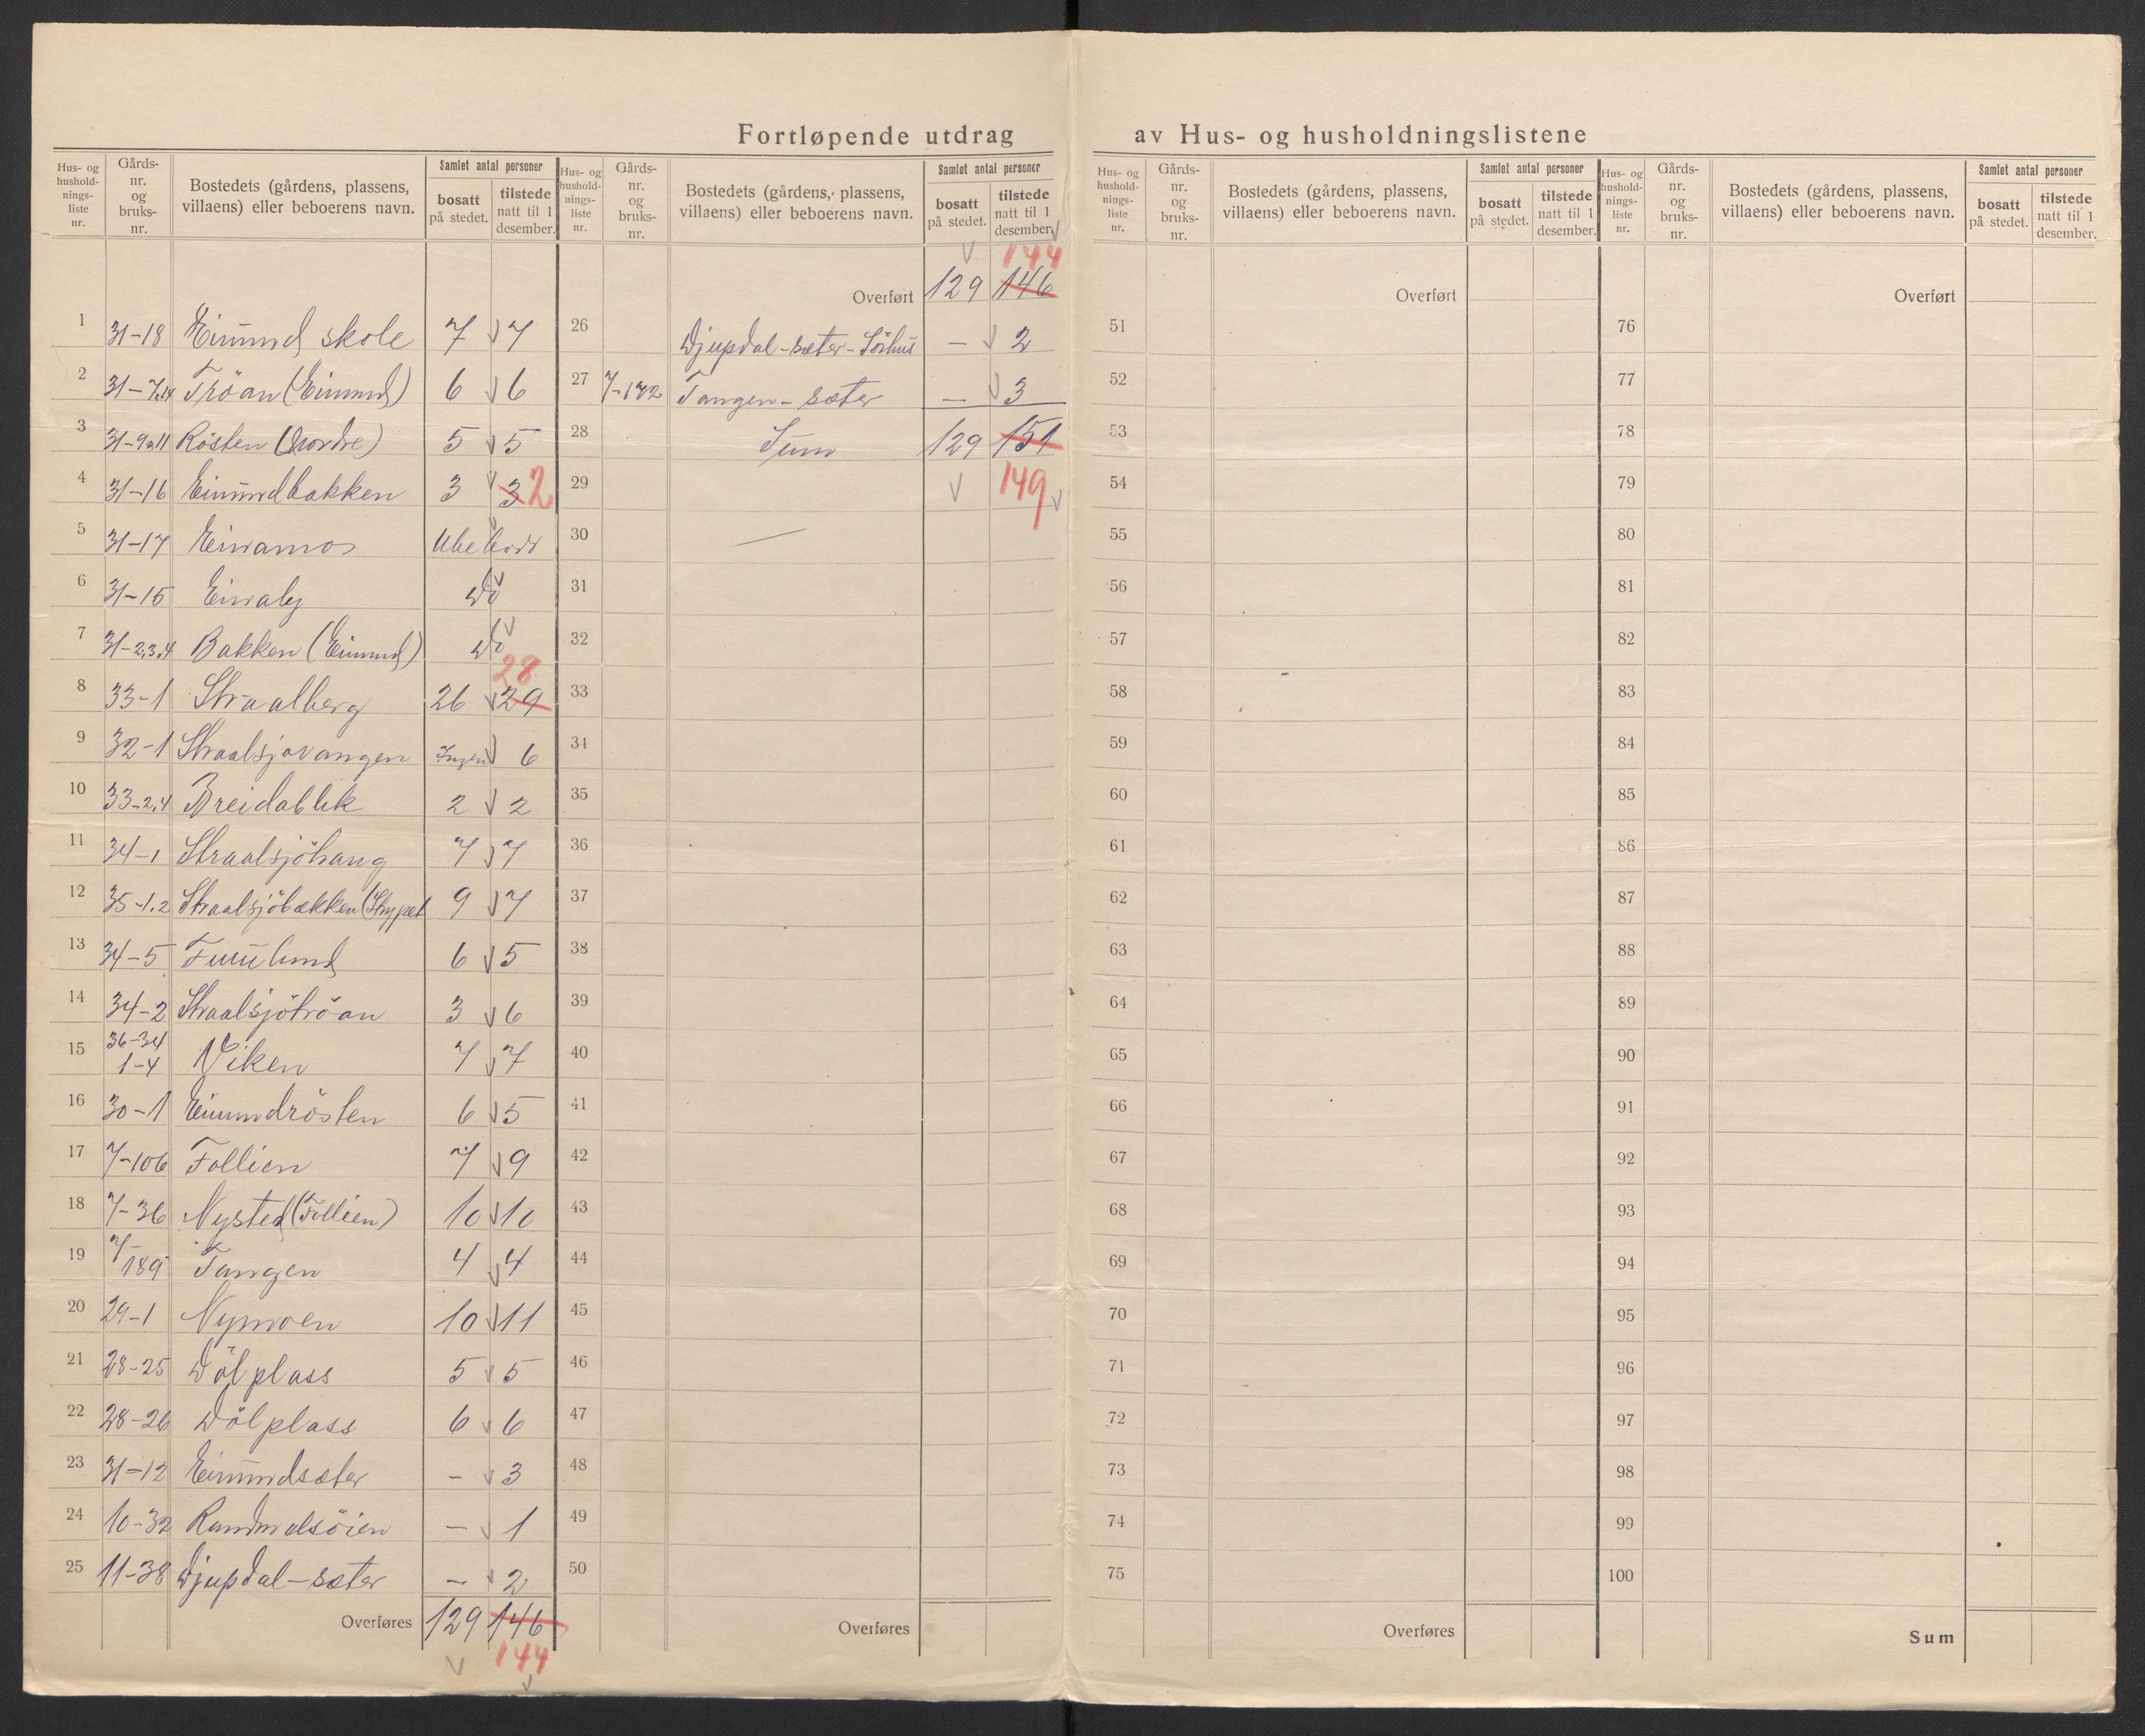 Fortløpende utdrag av Hus- og husholdningslistene
Hus- og hushold- nings- liste nr. | Gårds- nr. og bruks- nr. | Bostedets (gårdens, plassens, villaens) eller beboerens navn. | Samlet antal personer bosatt på stedet. | tilstede natt til 1 desember.
1 31-18 Eimund skole 7 7
2 31-7,14 Tröan (Eimund) 6 6
3 31-9,11 Rösten (Nordre) 5 5
4 31-16 Eimundbakken 3 3 2
5 31-17 Eivamos Ubebodd
6 31-15 Eivaly Do
7 31-2,3,4 Bakken (Eimund) Do
28
8 33-1 Straalberg 26 29
9 32-1 Straalsjøvangen Ingen 6
10 33-2,4 Breidablik 2 2
11 34-1 Straalsjöhaug 7 7
12 35-1,2 Straalsjöbækken 9 7
13 34-5 Furulund 6 5
14 34-2 Straalsjötröan 3 6
15 36-34 1-4 Viken 7 7
16 30-1 Eimundrösten 6 5
17 7-106 Follien 7 9
18 7-36 Nysted (Follien) 10 10
19 7-189 Tangen 4 4
20 29-1 Nymoen 10 11
21 28-25 Dölplass 5 5
22 28-26 Dölplass 6 6
23 31-12 Eimundsæter - 3
24 10-32 Randmælsöien - 1
25 11-38 Djupdal-sæter - 2
Overføres 129 146
144
Hus- og hushold- nings- liste nr. | Gårds- nr. og bruks- nr. | Bostedets (gårdens, plassens, villaens) eller beboerens navn. | Samlet antal personer bosatt på stedet. | tilstede natt til 1 desember.
144
Overført 129 146
26 Djupdal-sæter-Sörhus - 2
27 7-172 Tangen-sæter - 3
28 Sum 129 151
29 149
30 —
31
32
33
34
35
36
37
38
39
40
41
42
43
44
45
46
47
48
49
50
Overføres
Hus- og hushold- nings- liste nr. | Gårds- nr. og bruks- nr. | Bostedets (gårdens, plassens, villaens) eller beboerens navn. | Samlet antal personer bosatt på stedet. | tilstede natt til 1 desember.
Overført
51
52
53
54
55
56
57
58
59
60
61
62
63
64
65
66
67
68
69
70
71
72
73
74
75
Overføres
Hus- og hushold- nings- liste nr. | Gårds- nr. og bruks- nr. | Bostedets (gårdens, plassens, villaens) eller beboerens navn. | Samlet antal personer bosatt på stedet. | tilstede natt til 1 desember.
Overført
76
77
78
79
80
81
82
83
84
85
86
87
88
89
90
91
92
93
94
95
96
97
98
99
100
Sum